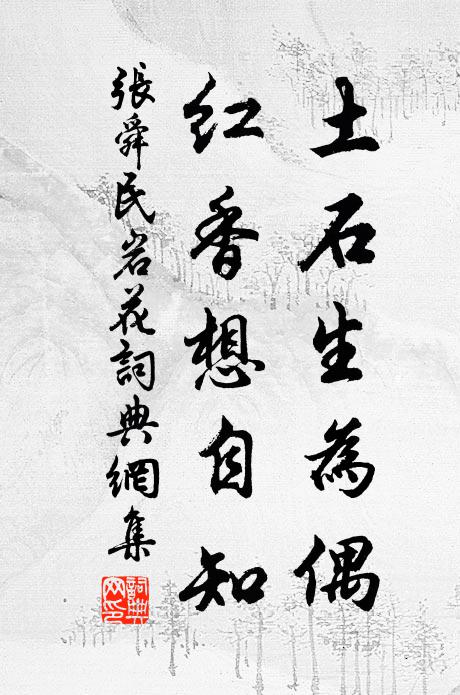 土石生為偶
紅香想自知
張舜民岩花詞典網集
詞典網印